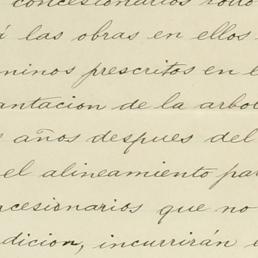 concesionarios
á las obras en ellos
minos prescritos en el
antacion de la arbol
s años despues del
el alineamiento par
cesionarios que no
dicion, incurrirán e